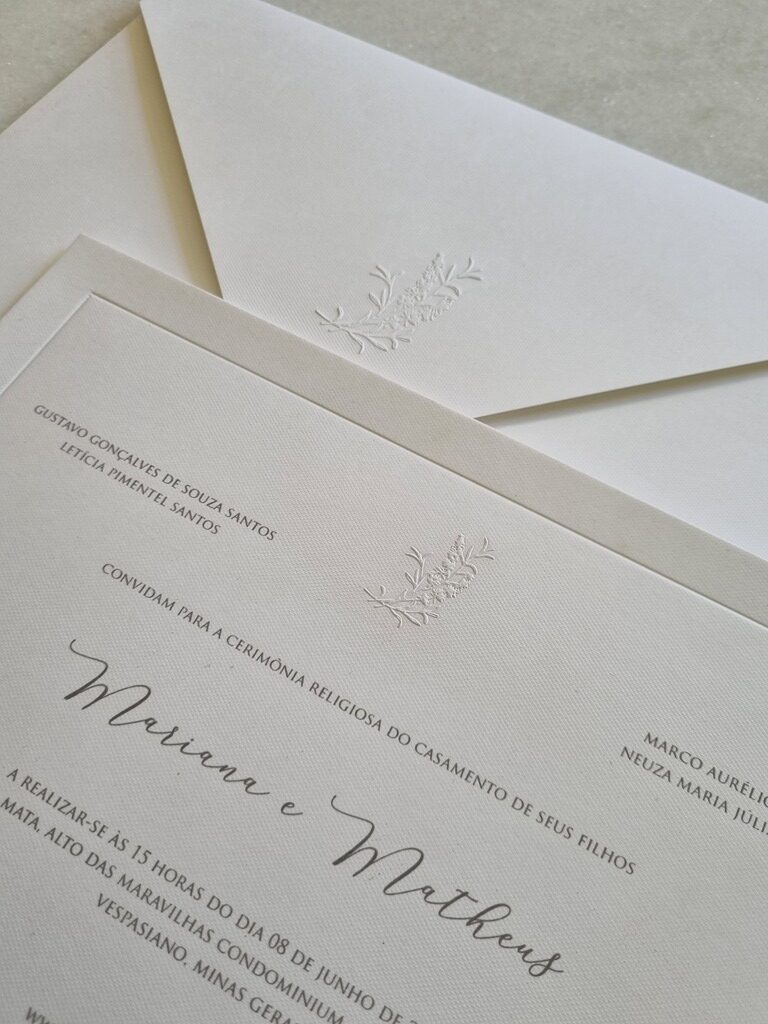 GUSTAVO GONÇALVES DE SOUZA SANTOS
LETÍCIA PIMENTEL SANTOS
MARCO AURÉLIO
NEUZA MARIA
CONVIDAM PARA A CERIMÔNIA RELIGIOSA DO CASAMENTO DE SEUS FILHOS
Mariana e Matheus
A REALIZAR-SE ÀS 15 HORAS DO DIA 08 DE JUNHO DE
MATA, ALTO DAS MARAVILHAS CONDOMINIUM
VESPASIANO, MINAS